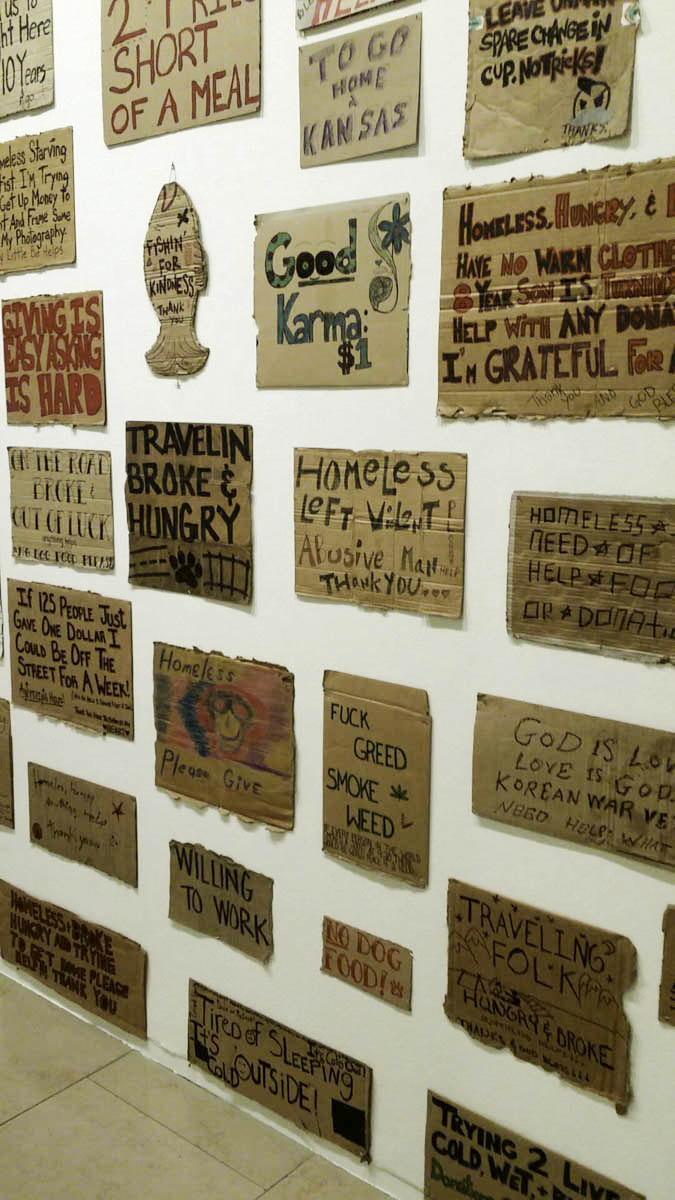 us to
ht Here
10 Years
2
SHORT
OF A MEAL
HEL
TO GO
HOME
KANSAS
LEAVE
SPARE CHANGE IN
CUP. NO TRICKS!
THANKS
meless Starving
tist I'm Trying
Get Up Money To
nt And Frame Some
My Photography.
Little Bit Helps
FISHIN
FOR
KINDNESS
THANK
YOU
Good
Karma:
$1
HOMELESS, HUNGRY, &
HAVE NO WARM CLOTHE
8 YEAR SON IS TURNIN
HELP WITH ANY DONA
I'M GRATEFUL FOR A
THANK YOU AND GOD BLE
GIVING IS
EASY ASKING
IS HARD
ON THE ROAD
BROKE &
OUT OF LUCK
anything helps
AND DOG FOOD PLEASE
TRAVELIN
BROKE &
HUNGRY
HOMELESS
LEFT VIOLENT
ABUSIVE MAN
THANK YOU...
PLEASE
HELP
HOMELESS
NEED OF
HELP FOO
OR DONATI
If 125 People Just
Gave One Dollar I
Could Be Off The
Street For A Week!
Homeless
Please Give
FUCK
GREED
SMOKE
WEED
GOD IS LOV
LOVE IS GOD.
KOREAN WAR VE
NEED HELP. WHAT
Homeless, hungry
anything helps
thank you
WILLING
TO WORK
NO DOG
FOOD!
HOMELESS & BROKE
HUNGRY AND TRYING
TO GET HOME PLEASE
HELP!! THANK YOU
TRAVELING
FOLK
HUNGRY & BROKE
ANYTHING HELPS
TIRED OF SLEEPING
IT'S COLD OUTSIDE!
TRYING 2 LIV
COLD, WET, +